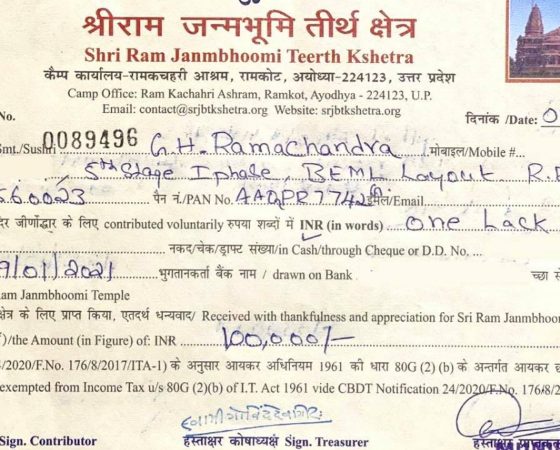 श्रीराम जन्मभूमि तीर्थ क्षेत्र
Shri Ram Janmbhoomi Teerth Kshetra
कैम्प कार्यालय-रामकचहरी आश्रम, रामकोट, अयोध्या-224123, उत्तर प्रदेश
Camp Office: Ram Kachahri Ashram, Ramkot, Ayodhya - 224123, U.P.
Email: contact@srjbtkshetra.org Website: srjbtkshetra.org
No. दिनांक /Date: 0
0089496
Smt./Sushri G.H. Ramachandra मोबाइल/Mobile #...
5th Stage I phase, BEML Layout R.R
560023 पैन नं./PAN No. AAQPR7742 ईमेल/Email
दिर जीर्णोद्धार के लिए contributed voluntarily रुपया शब्दों में INR (in words) One Lack
नकद/चेक/ड्राफ्ट संख्या/in Cash/through Cheque or D.D. No. ...
9/01/2021 भुगतानकर्ता बैंक नाम / drawn on Bank
am Janmbhoomi Temple
क्षेत्र के लिए प्राप्त किया, एतदर्थ धन्यवाद/ Received with thankfulness and appreciation for Sri Ram Janmbhoom
)/the Amount (in Figure) of: INR 100,000/-
4/2020/F.No. 176/8/2017/ITA-1) के अनुसार आयकर अधिनियम 1961 की धारा 80G (2) (b) के अन्तर्गत आयकर छ
exempted from Income Tax u/s 80G (2)(b) of I.T. Act 1961 vide CBDT Notification 24/2020/F.No. 176/8/2
Sign. Contributor हस्ताक्षर कोषाध्यक्ष Sign. Treasurer